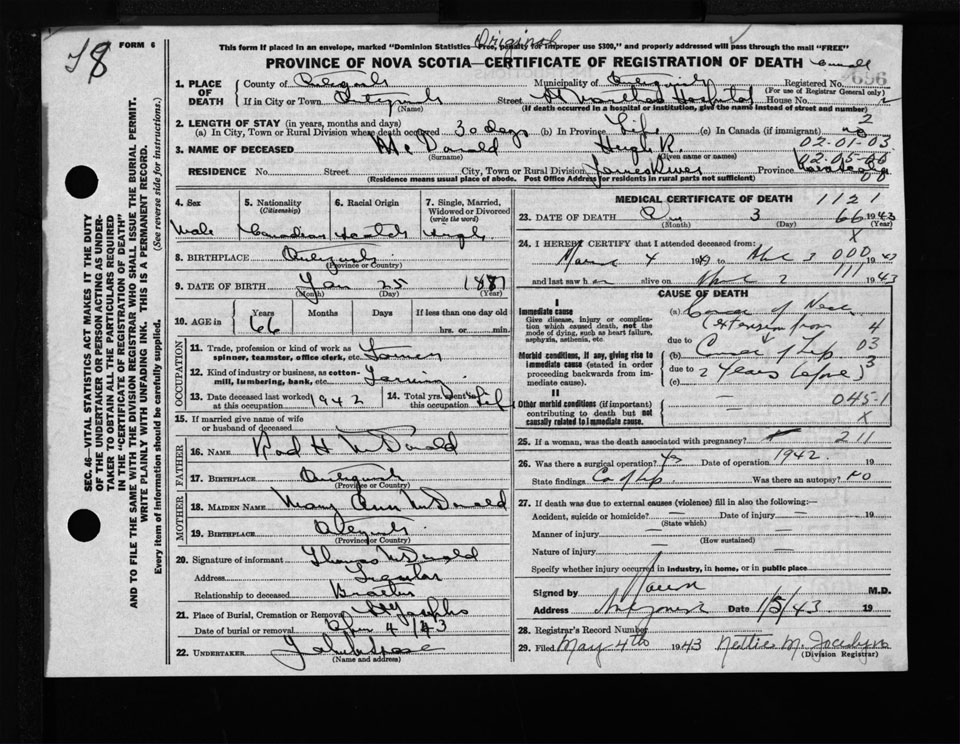 18
FORM 6
Original
This form if placed in an envelope, marked "Dominion Statistics—Free, penalty for improper use $300," and properly addressed will pass through the mail "FREE"
PROVINCE OF NOVA SCOTIA—CERTIFICATE OF REGISTRATION OF DEATH
996
SEC. 46—VITAL STATISTICS ACT MAKES IT THE DUTY
OF THE UNDERTAKER OR PERSON ACTING AS UNDER-
TAKER TO OBTAIN ALL THE PARTICULARS REQUIRED
IN THE "CERTIFICATE OF REGISTRATION OF DEATH"
AND TO FILE THE SAME WITH THE DIVISION REGISTRAR WHO SHALL ISSUE THE BURIAL PERMIT.
WRITE PLAINLY WITH UNFADING INK. THIS IS A PERMANENT RECORD.
Every item of information should be carefully supplied. (See reverse side for instructions.)
1. PLACE OF DEATH
County of Antigonish Municipality of Antigonish Registered No.
(For use of Registrar General only)
If in City or Town Antigonish Street St Marthas Hospital House No.
(Name) (If death occurred in a hospital or institution, give the name instead of street and number)
2. LENGTH OF STAY (in years, months and days)
(a) In City, Town or Rural Division where death occurred 30 days (b) In Province Life (c) In Canada (if immigrant) no
2
3. NAME OF DECEASED McDonald Hugh R. 02-01-03
(Surname) (Given name or names) 02-05-00
RESIDENCE No. Street City, Town or Rural Division James River Province
(Residence means usual place of abode. Post Office Address for residents in rural parts not sufficient)
4. Sex
Male
5. Nationality
(Citizenship)
Canadian
6. Racial Origin
Scotch
7. Single, Married, Widowed or Divorced
(write the word)
Single
8. BIRTHPLACE Antigonish
(Province or Country)
9. DATE OF BIRTH Jan 25 1887
(Month) (Day) (Year)
10. AGE in
Years Months Days If less than one day old
66 hrs. or min.
OCCUPATION
11. Trade, profession or kind of work as
spinner, teamster, office clerk, etc. Farmer
12. Kind of industry or business, as cotton-
mill, lumbering, bank, etc. Farming
13. Date deceased last worked at this occupation 1942
14. Total yrs. spent in this occupation Life
15. If married give name of wife
or husband of deceased
FATHER
16. NAME Rod H McDonald
17. BIRTHPLACE Antigonish
(Province or Country)
MOTHER
18. MAIDEN NAME Mary Ann McDonald
19. BIRTHPLACE Antigonish
(Province or Country)
20. Signature of informant Thomas McDonald
Address
Relationship to deceased Brother
21. Place of Burial, Cremation or Removal St Josephs
Date of burial or removal Apr 4 /43
22. UNDERTAKER
(Name and address)
MEDICAL CERTIFICATE OF DEATH 1121
23. DATE OF DEATH 3 66 1943
(Month) (Day) (Year)
X
24. I HEREBY CERTIFY that I attended deceased from
March 4 19 to 3 000 19
and last saw h alive on April 2 111 1943
CAUSE OF DEATH
I
Immediate cause
Give disease, injury or complication which caused death, not the mode of dying, such as heart failure, asphyxia, asthenia, etc
Morbid conditions, if any, giving rise to immediate cause (stated in order proceeding backwards from immediate cause).
II
Other morbid conditions (if important) contributing to death but not causally related to immediate cause.
(a) Cancer of Neck
(extension from 4
due to 03
(b) Cancer of Lip 3
due to 2 years before)
(c)
045-1
X
25. If a woman, was the death associated with pregnancy? 211
26. Was there a surgical operation? Yes Date of operation 1942 19
State findings Ca of Lip Was there an autopsy? No
27. If death was due to external causes (violence) fill in also the following:—
Accident, suicide or homicide? — Date of injury — 19
(State which)
Manner of injury —
(How sustained)
Nature of injury —
Specify whether injury occurred in industry, in home, or in public place
Signed by M.D.
Address Antigonish Date 1/5/43 19
28. Registrar's Record Number
29. Filed May 4th 1943 Nettie M. Jocelyn
(Division Registrar)